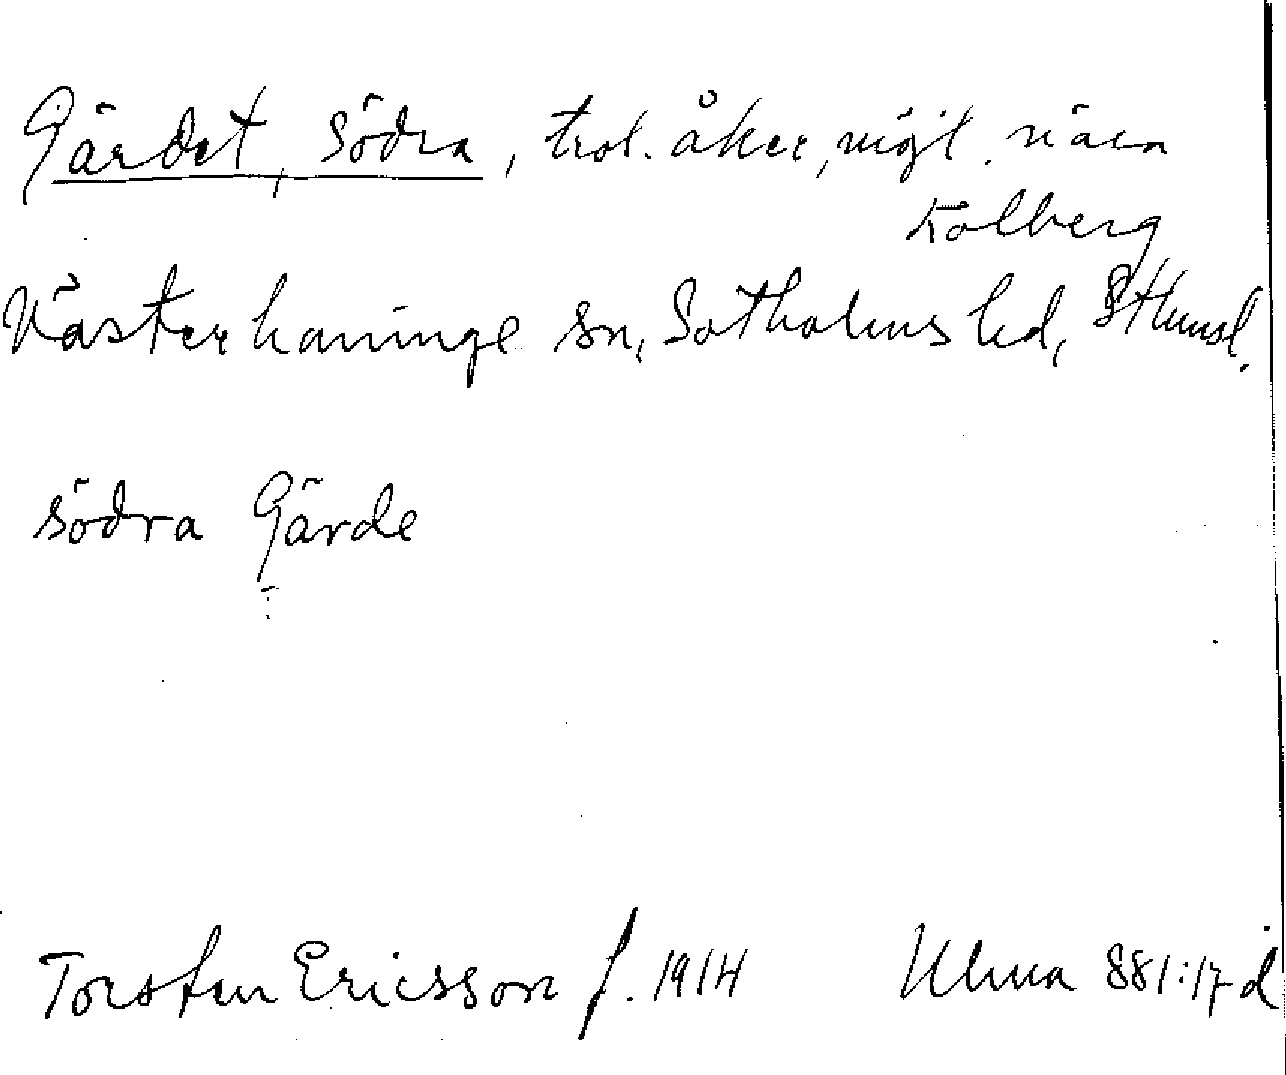 Gärdet, södra, trol. åker, möjl. nära
Kolberg
Västerhaninge sn, Sotholms hd, Sthmsl.
södra Gärde
Torsten Ericsson f. 1914 Ulma 881:17 d